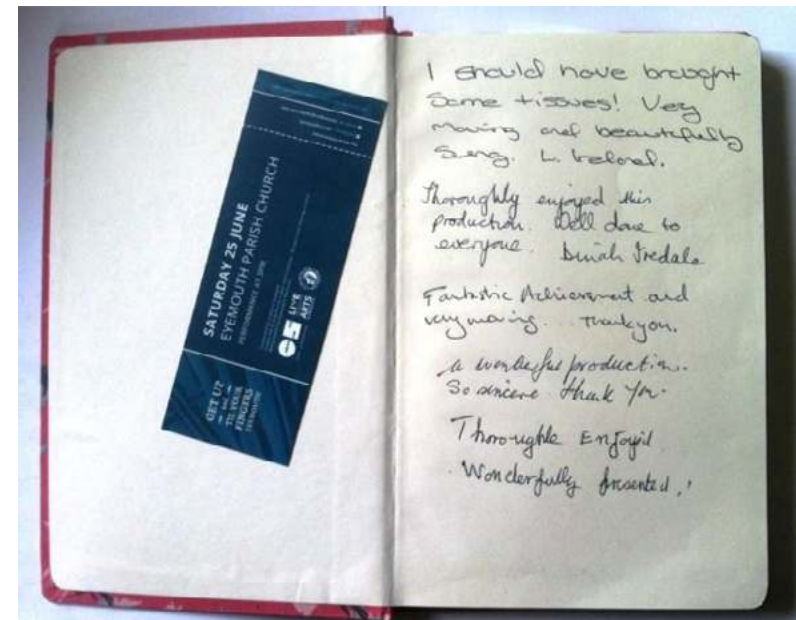 SATURDAY 25 JUNE
EYEMOUTH PARISH CHURCH
PERFORMANCE AT
LIVE
ARTS
GET UP
TIE YOUR
FINGERS
EYEMOUTH
I should have brought
some tissues! Very
moving and beautifully
Sung. L. Ireland.
Thoroughly enjoyed this
production. Well done to
everyone. Dinah Iredale
Fantastic Achievement and
very moving... Thankyou.
a wonderful production.
So sincere. thank you.
Thoroughle Enjoyd
Wonderfully presented!